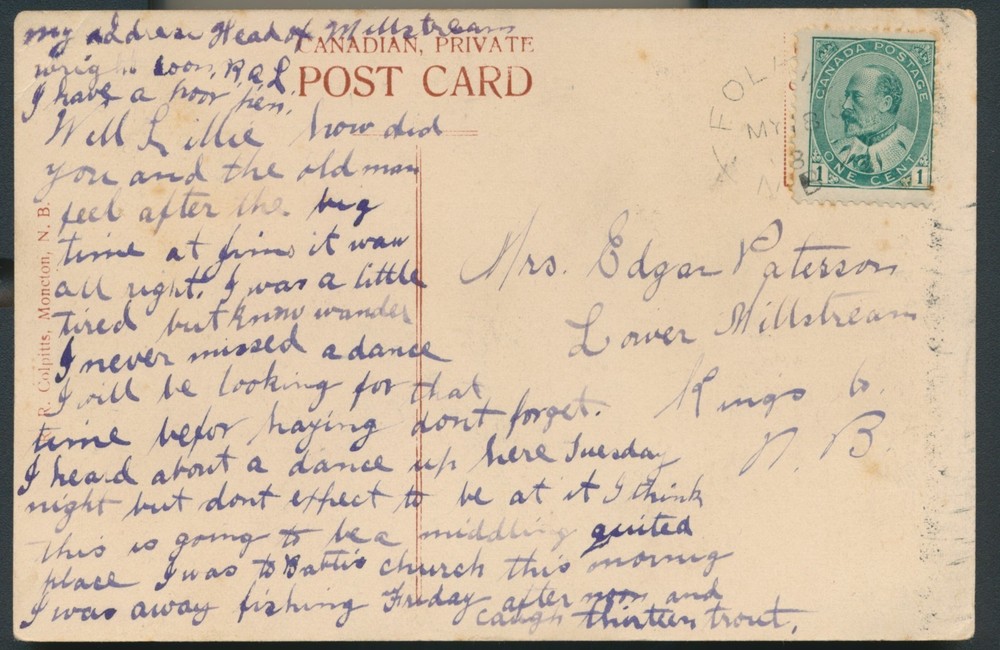 my address Head of Millstream
wright soon, R a L
I have a poor pen.
CANADIAN, PRIVATE
POST CARD
Well Lillie how did
you and the old man
feel after the big
time at Jims it was
all right. I was a little
tired but know wonder
I never missed a dance
I will be looking for that
time befor haying dont forget.
I heard about a dance up here Tuesday
night but dont expect to be at it I think
this is going to be a middling quited
place I was to Battis church this morning
I was away fishing Friday after noon and
caugh thirteen trout.
R. Colpitts, Moncton, N. B.
MY 18
CANADA POSTAGE
ONE CENT
1 1
Mrs. Edgar Paterson
Lower Millstream
Kings Co.
N. B.